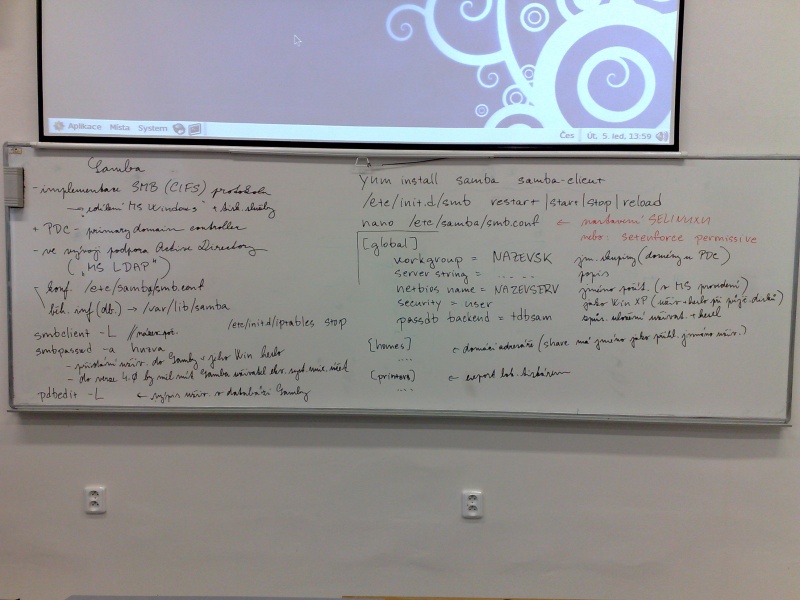 Aplikace Místa Systém
Čes Út, 5. led, 13:59
Samba
- implementace SMB (CIFS) protokolu
→ sdílení "MS Windows" + tisk. služby
+ PDC - primary domain controller
- ve vývoji podpora Active Directory
("MS LDAP")
konf. /etc/samba/smb.conf
běh. inf (db.) → /var/lib/samba
/etc/init.d/iptables stop
smbclient -L //název poč.
smbpasswd -a
- přidání uživ. do Samby + jeho Win heslo
- do verze 4.0 by měl mít Samba uživatel ekv. syst. unix. účet
pdbedit -L ← výpis uživ. v databázi Samby
yum install samba samba-client
/etc/init.d/smb restart|start|stop|reload
nano /etc/samba/smb.conf ← nastavení SELINUXU
nebo: setenforce permissive
[global]
workgroup = NAZEVSK jm. skupiny (domény u PDC)
server string = ..... popis
netbios name = NAZEVSERV jméno počít. (v MS prostředí)
security = user jako Win XP (uživ + heslo při
passdb backend = tdbsam způs. uložení uživat. + hesel
[homes] ← domácí adresáře (share má jméno jako přihl. jméno uživ.)
....
[printers] ← export lok. tiskáren
....